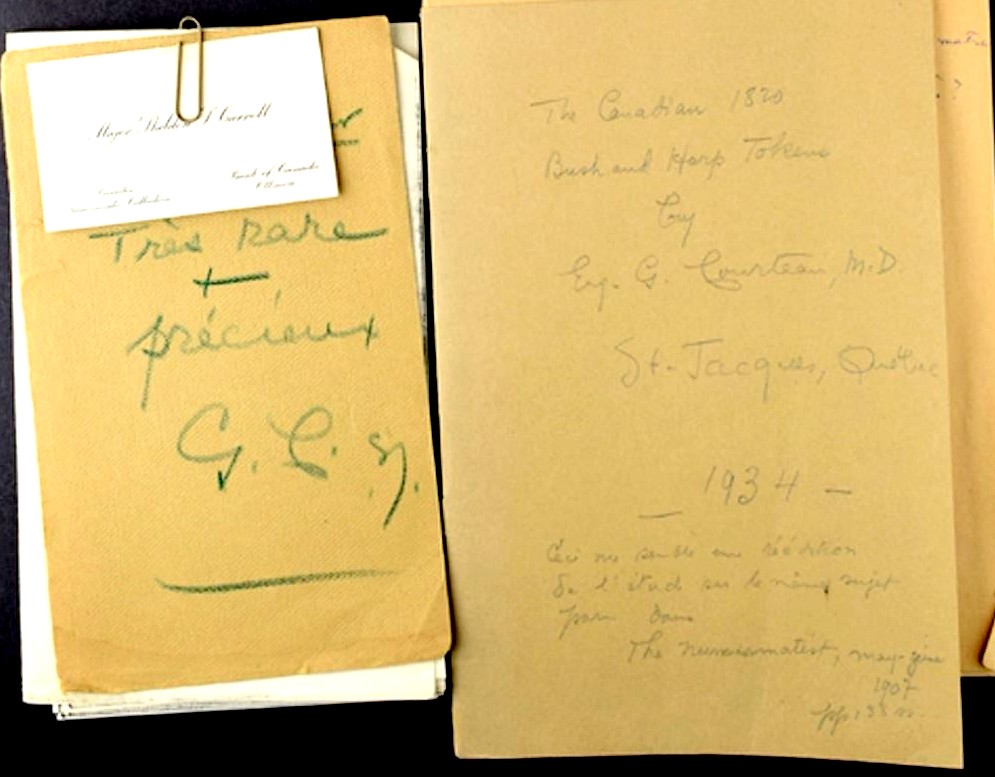 Major Sheldon S Carroll
Bank of Canada
Ottawa
Curator
Numismatic Collection
Très rare
+
précieux
G. C. sj.
The Canadian 1820
Bush and Harp Tokens
by
Eug. G. Courteau, M.D.
St-Jacques, Québec
1934 -
-
Ceci me semble une réédition
de l'étude sur le même sujet
paru dans
The numismatist, may-june
1907
pp 133
?